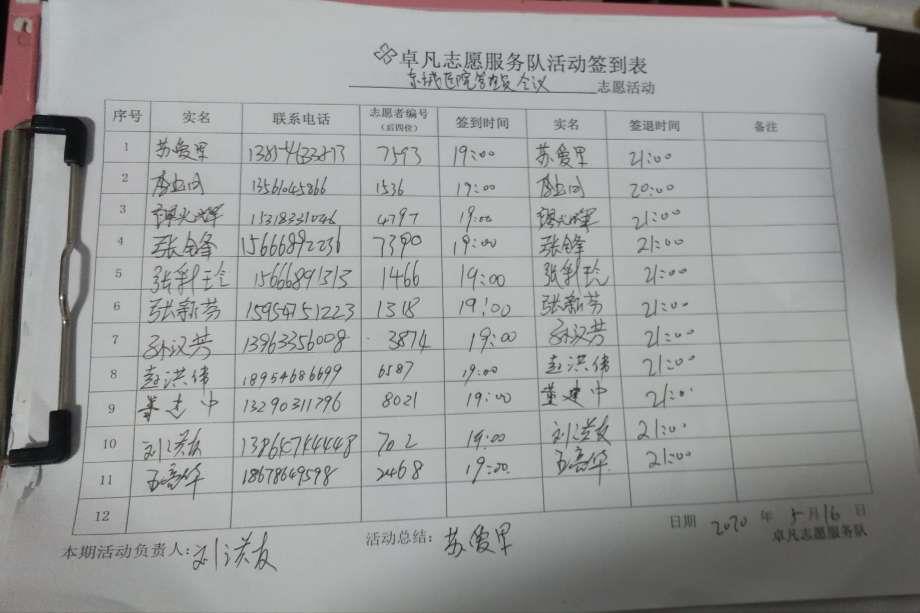 卓凡志愿服务队活动签到表
东城医院 会议 志愿活动
序号 实名 联系电话 志愿者编号（后四位） 签到时间 实名 签退时间 备注
1 苏爱军 7393 19:00 苏爱军 21:00
2 13561045866 1536 19:00 20:00
3 15318331046 4797 19:00 21:00
4 张锋 15666892236 7390 19:00 张锋 21:00
5 张利玲 15666891313 1466 19:00 张利玲 21:00
6 张新芳 15954751223 1318 19:00 张新芳 21:00
7 孙汉芹 13963356008 3874 19:00 孙汉芹 21:00
8 赵洪伟 18954686699 6587 19:00 赵洪伟 21:00
9 董建中 13290311796 8021 19:00 董建中 21:00
10 刘洪友 702 19:00 刘洪友 21:00
11 18678649598 2468 19:00 21:00
12
日期 2020 年 5 月 16 日
本期活动负责人：刘洪友 活动总结：苏爱军 卓凡志愿服务队